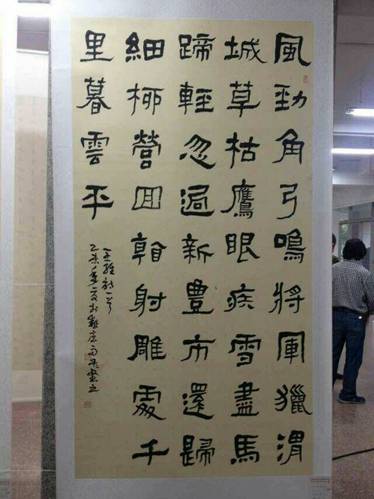 風勁角弓鳴將軍獵渭
城草枯鷹眼疾雪盡馬
蹄輕忽過新豊市還歸
細柳營回看射雕處千
里暮雲平
王維詩一首
乙未